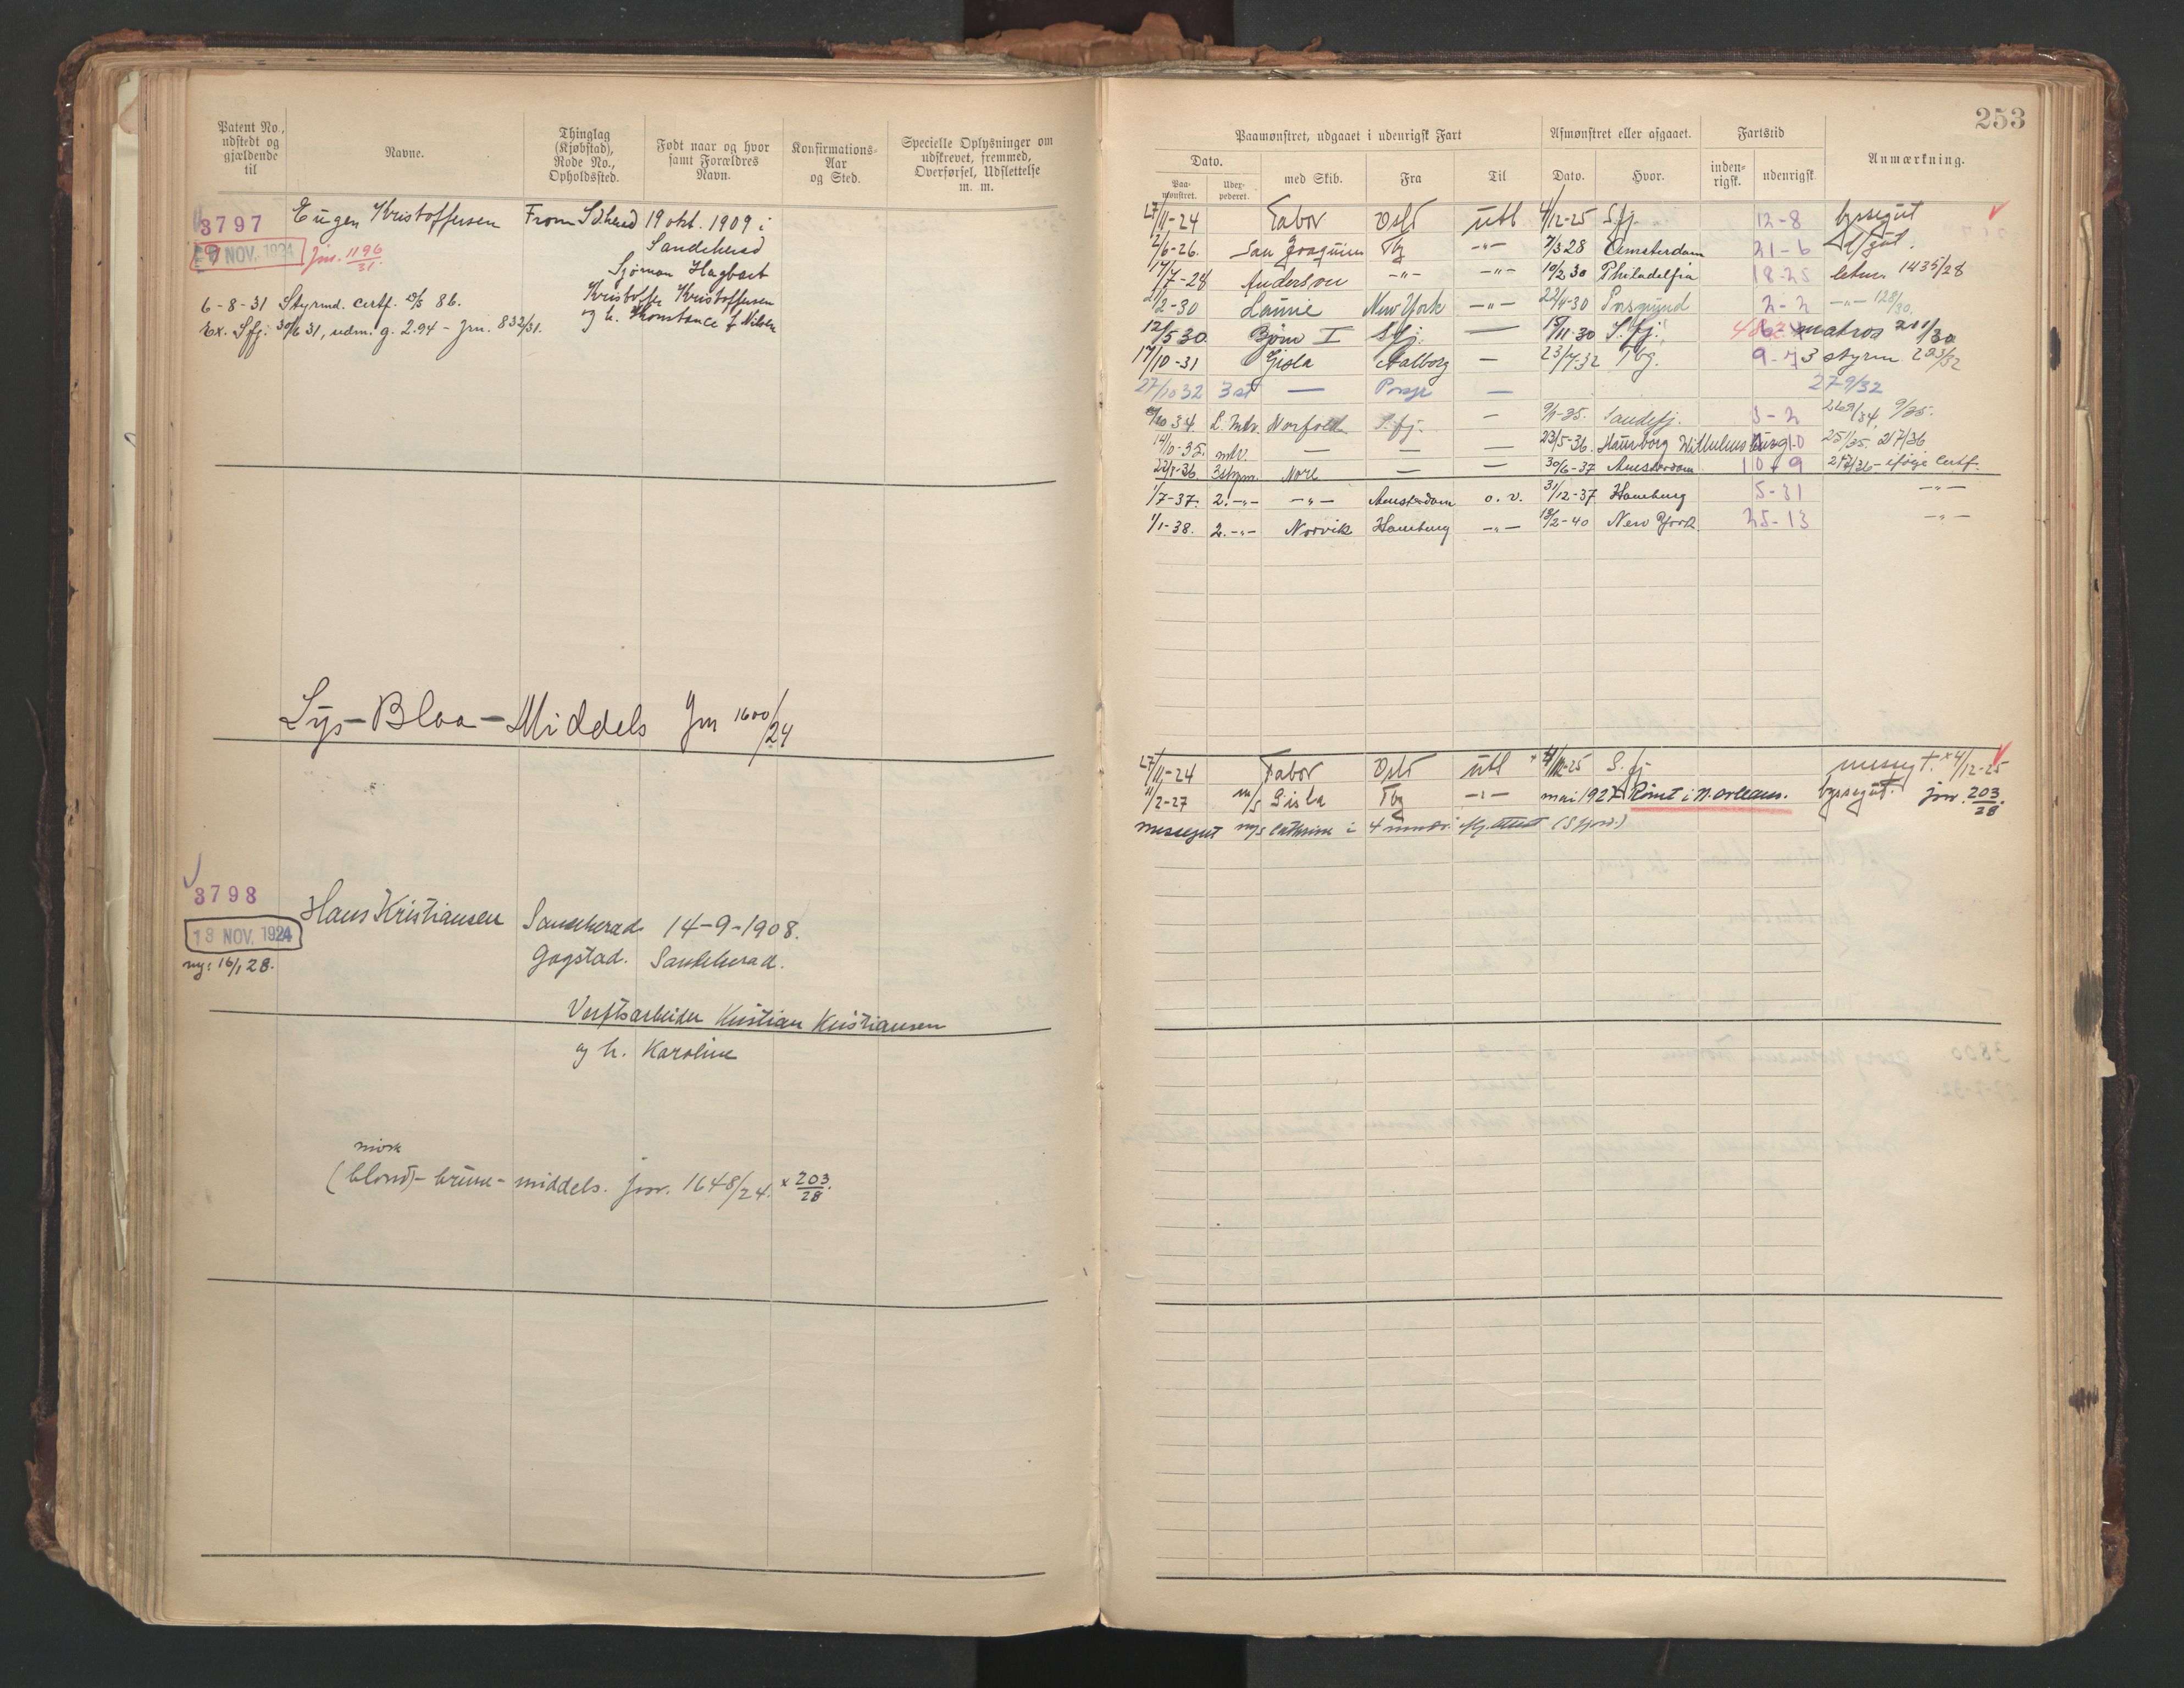 253
Patent No., udstedt og gjældende til
Navne.
Thinglag (Kjøbstad), Rode No., Opholdssted.
Født naar og hvor samt Forældres Navn.
Konfirmations-Aar og Sted.
Specielle Oplysninger om udskrevet, fremmed, Overførsel, Udslettelse m. m.
Paamønstret, udgaaet i udenrigsk Fart
Afmønstret eller afgaaet.
Fartstid
Anmærkning.
Dato.
Paa-mønstret.
med Skib.
Fra
Til
Dato.
Hvor.
inden-rigsk.
udenrigsk.
3797 Eugen Kristoffersen From Sdherd 19 okt. 1909 i
NOV. 1924 Jnr. 1196/31 Sandeherad
Sjøman Hagbart
Kristoffer Kristoffersen
og h. Konstance f. Nilsen
6-8-31 Styrmd. Certf. 86.
Ex. Sfj. 30/6 31, udm. g. 2.94 - Jrn. 832/31.
Lys-Blaa-Middels Jrn 1600/24
27/11-24 Tabor Oslo utl 4/12-25 S.fj. 12-8 byssegut
2/6-26. San Joaquin Tbg -"- 7/3 28 Amsterdam 21-6 d/gut.
17/7-28 Anderson -"- -"- 10/2 30 Philadelfia 18-25 letm. 1435/28
21/2-30 Laurie New York -"- 22/4-30 Porsgrund 2-2 -"- 128/30.
12/5 30. Bjørn I Sfj. — 15/11-30 S.fj. matros 211/30
17/10-31 Gisla Aalborg — 23/7-32 Tbg. 9-7 3 styrm 223/32
27/10 32 3 st — Porsgr — 279/32
34. L. Mtr. Norfold S.fj. — 9/9-35. Sandefj. 3-2 9/35.
14/10-35. mtr. — — — 23/5-36. Hamborg Wilhelmsburg 10
3 styrm. Nore — — 30/6-37 Amsterdam 10-9 ifølge Certf.
1/7-37. 2.-"- -"- Amsterdam o. v. 31/12-37 Hamburg 5-31 -"-
1/1-38. 2.-"- Norvik Hamburg -"- 13/2-40 New York. 25-13 -"-
3798 Hans Kristiansen Sandeherad 14-9-1908.
18 NOV. 1924 Gogstad. Sandeherad.
ny: 16/1 28.
Verftsarbeider Kristian Kristiansen
og h. Karoline
mørk
(blond)-brune-middels. Jnr. 1648/24. x 203/28.
27/11-24 Tabor Oslo utl x 4/12-25 S.fj messegt. x 4/12-25
11/2-27 m/s Gisla Tbg -"- mai 1927 Rømt i N. Orleans. byssegut. jnr. 203/28.
messegut m/s Cathrine i 4 mndr.